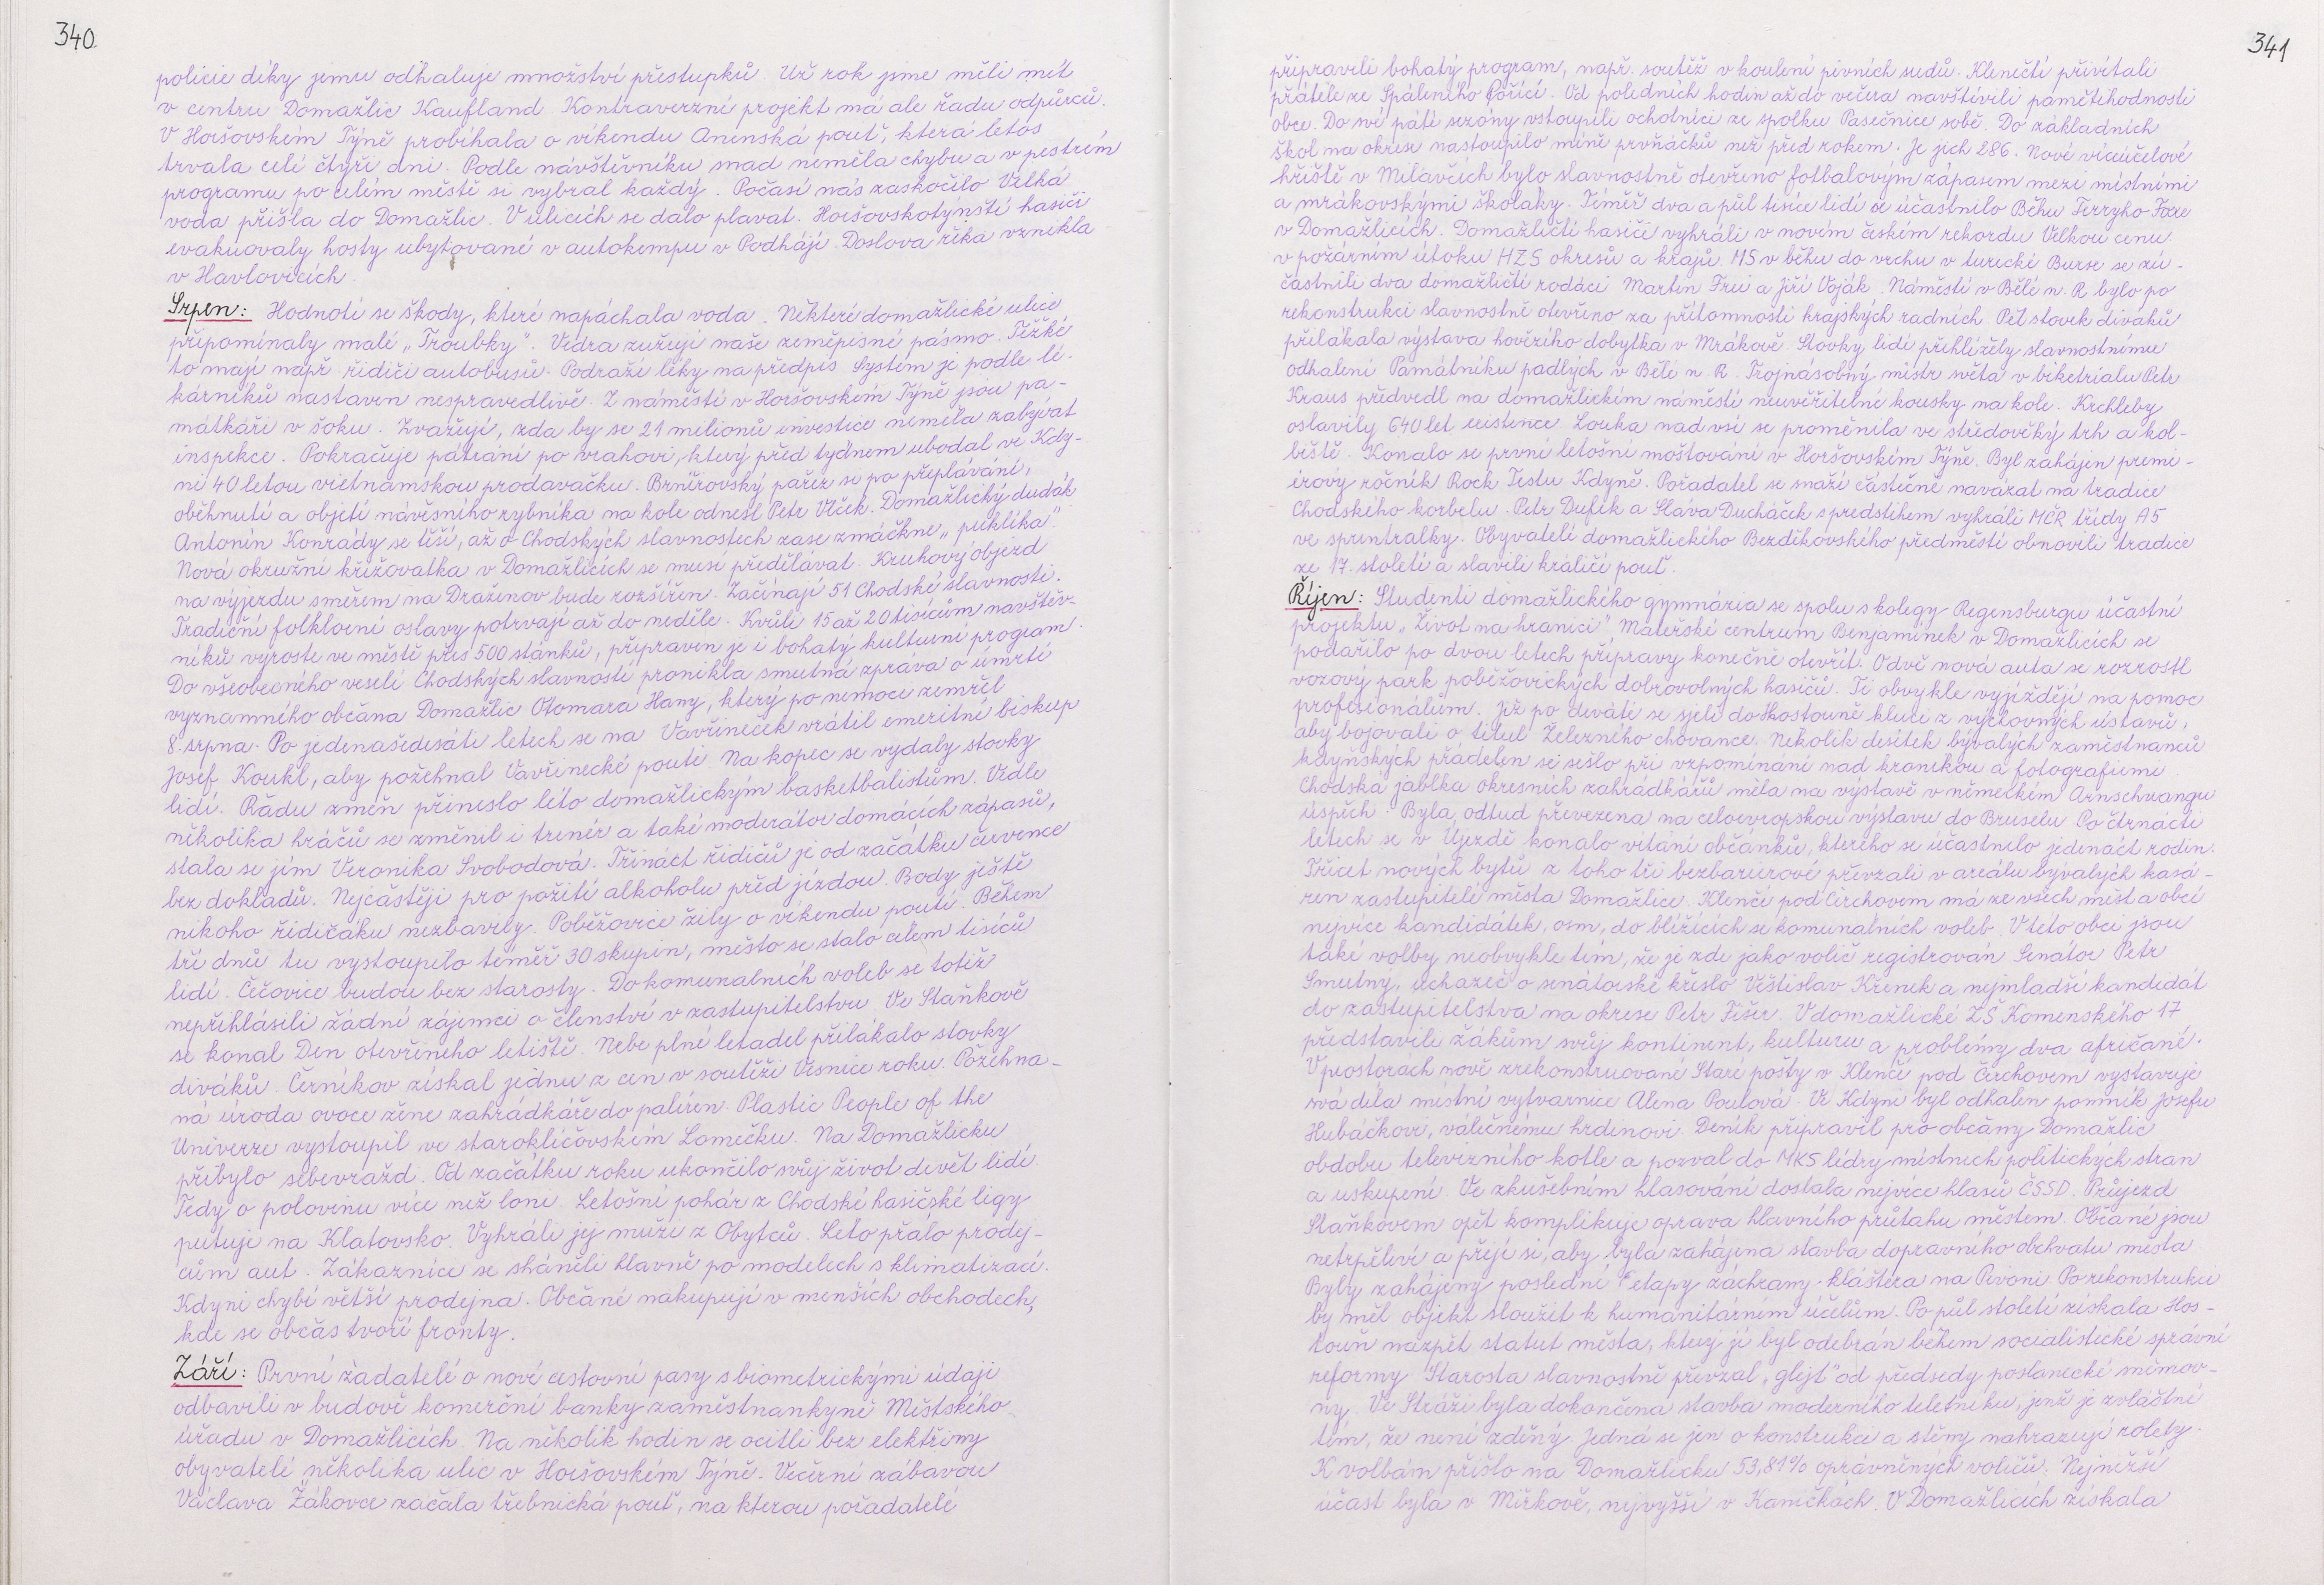 340
policie díky jemu odhaluje množství přestupků. Už rok jsme měli mít
v centru Domažlic Kaufland. Kontraverzní projekt má ale řadu odpůrců.
V Horšovském Týně probíhala o víkendu Anenská pouť, která letos
trvala celé čtyři dni. Podle návštěvníku snad neměla chybu a v pestrém
programu po celém městě si vybral každý. Počasí nás zaskočilo Velká
voda přišla do Domažlic. V ulicích se dalo plavat. Horšovskotýnští hasiči
evakuovaly hosty ubytované v autokempu v Podhájí. Doslova řeka vznikla
v Havlovicích.
Srpen: Hodnotí se škody, které napáchala voda. Některé domažlické ulice
připomínaly malé „Troubky". Vedra zužují naše zeměpisné pásmo. Těžké
to mají např. řidiči autobusů. Podraží léky na předpis. Systém je podle lé-
kárníků nastaven nespravedlivě. Z náměstí v Horšovském Týně jsou pa-
mátkáři v šoku. Zvažují, zda by se 21 milionů investice neměla zabývat
inspekce. Pokračuje pátrání po vrahovi, který před týdnem ubodal ve Kdy-
ni 40letou vietnamskou prodavačku. Brnířovský pařez se po přeplávání,
oběhnutí a objetí návesního rybníka na kole odnesl Petr Vlček. Domažlický dudák
Antonín Konrády se těší, až o Chodských slavnostech zase zmáčkne „puklíka".
Nová okružní křižovatka v Domažlicích se musí předělávat. Kruhový objezd
na výjezdu směrem na Draženov bude rozšířen. Začínají 51 Chodské slavnosti.
Tradiční folklorní oslavy potrvají až do neděle. Kvůli 15 až 20 tisícům návštěv-
níků vyroste ve městě přes 500 stánků, připraven je i bohatý kulturní program.
Do všeobecného veselí Chodských slavností pronikla smutná zpráva o úmrtí
významného občana Domažlic Otomara Hany, který po nemoci zemřel
8. srpna. Po jedenašedesáti letech se na Vavřineček vrátil emeritní biskup
Josef Koukl, aby požehnal Vavřinecké pouti. Na kopec se vydaly stovky
lidí. Řadu změn přineslo léto domažlickým basketbalistům. Vedle
několika hráčů se změnil i trenér a také moderátor domácích zápasů,
stala se jím Veronika Svobodová. Třináct řidičů je od začátku července
bez dokladů. Nejčastěji pro požití alkoholu před jízdou. Body ještě
nikoho řidičáku nezbavily. Poběžovice žily o víkendu poutí. Během
tří dnů tu vystoupilo téměř 30 skupin, město se stalo cílem tisíců
lidí. Čečovice budou bez starosty. Do komunalních voleb se totiž
nepřihlásili žádní zájemci o členství v zastupitelstvu. Ve Staňkově
se konal Den otevřeného letiště. Nebe plné letadel přilákalo stovky
diváků. Černíkov získal jednu z cen v soutěži Vesnice roku. Požehna-
ná úroda ovoce žene zahrádkáře do palíren. Plastic People of the
Univerze vystoupil ve starokličovském Lomečku. Na Domažlicku
přibylo sebevražd. Od začátku roku ukončilo svůj život devět lidí.
Tedy o polovinu více než loni. Letošní pohár z Chodské hasičské ligy
putuje na Klatovsko. Vyhráli jej muži z Obytců. Léto přálo prodej-
cům aut. Zákazníci se sháněli hlavně po modelech s klimatizací.
Kdyni chybí větší prodejna. Občané nakupují v menších obchodech,
kde se občas tvoří fronty.
Září: První žadatelé o nové cestovní pasy s biometrickými údaji
odbavili v budově komerční banky zaměstnankyně Městského
úřadu v Domažlicích. Na několik hodin se ocitli bez elektřiny
obyvatelé několika ulic v Horšovském Týně. Večerní zábavou
Václava Žákovce začala třebnická pouť, na kterou pořadatelé
341
připravili bohatý program, např. soutěž v koulení pivních sudů. Klenečtí přivítali
přátele ze Spáleného Poříčí. Od poledních hodin až do večera navštívili pamětihodnosti
obce. Do své páté sezóny vstoupili ochotníci ze spolku Pasečnice sobě. Do základních
škol na okrese nastoupilo méně prvňáčků než před rokem. Je jich 286. Nové víceúčelové
hřiště v Milavčích bylo slavnostně otevřeno fotbalovým zápasem mezi místními
a mrákovskými školáky. Téměř dva a půl tisíce lidí se účastnilo Běhu Terryho Foxe
v Domažlicích. Domažličtí hasiči vyhráli v novém českém rekordu Velkou cenu
v požárním útoku HZS okresů a krajů. MS v běhu do vrchu v turecké Burse se zú-
častnili dva domažličtí rodáci Martin Frei a Jiří Voják. Náměstí v Bělé n. R bylo po
rekonstrukci slavnostně otevřeno za přítomnosti krajských radních. Pět stovek diváků
přilákala výstava hovězího dobytka v Mrákově. Stovky lidí přihlížely slavnostnímu
odhalení Památníku padlých v Bělé n. R. Trojnásobný mistr světa v biketrialu Petr
Kraus předvedl na domažlickém náměstí neuvěřitelné kousky na kole. Krchleby
oslavily 640 let existence. Louka nad vsí se proměnila ve středověký trh a kol-
biště. Konalo se první letošní moštování v Horšovském Týně. Byl zahájen premi-
érový ročník Rock Testu Kdyně. Pořadatel se snaží částečně navázat na tradice
Chodského korbelu. Petr Dufek a Sláva Ducháček s předstihem vyhráli MČR třídy A5
ve sprintralky. Obyvatelé domažlického Bezděkovského předměstí obnovili tradice
ze 17. století a slavili králičí pouť.
Říjen: Studenti domažlického gymnázia se spolu s kolegy Regensburgu účastní
projektu „Život na hranici" Mateřské centrum Benjamínek v Domažlicích se
podařilo po dvou letech přípravy konečně otevřít. O dvě nová auta se rozrostl
vozový park poběžovických dobrovolných hasičů. Ti obvykle vyjíždějí na pomoc
profesionálům. Již po deváté se sjeli do Hostouně kluci z výchovných ústavů,
aby bojovali o titul Železného chovance. Několik desítek bývalých zaměstnanců
kdyňských přádelen se sešlo při vzpomínání nad kronikou a fotografiemi.
Chodská jablka okresních zahrádkářů měla na výstavě v německém Arnschwangu
úspěch. Byla odtud převezena na celoevropskou výstavu do Bruselu. Po čtrnácti
letech se v Újezdě konalo vítání občánků, kterého se účastnilo jedenáct rodin.
Třicet nových bytů z toho tři bezbariérové převzali v areálu bývalých kasá-
ren zastupitelé města Domažlice. Klenčí pod Čerchovem má ze všech města obcí
nejvíce kandidátek, osm, do blížících se komunálních voleb. V této obci jsou
také volby neobvykle tím, že je zde jako volič registrován Senátor Petr
Smutný, uchazeč o senátorské křeslo Věštislav Křenek a nejmladší kandidát
do zastupitelstva na okrese Petr Fišer. V domažlické ZŠ Komenského 17
představili žákům svůj kontinent, kulturu a problémy dva afričané.
V prostorách nově zrekonstruované Staré pošty v Klenčí pod Čerchovem vystavuje
svá díla místní výtvarnice Alena Poulová. Ve Kdyni byl odhalen pomník Josefu
Hubáčkovi, válečnému hrdinovi. Deník připravil pro občany Domažlic
obdobu televizního kotle a pozval do MKS lídry místních politických stran
a uskupení. Ve zkušebním hlasování dostala nejvíce hlasů ČSSD. Průjezd
Staňkovem opět komplikuje oprava hlavního průtahu městem. Občané jsou
netrpěliví a přejí si, aby byla zahájena stavba dopravního obchvatu města
Byly zahájeny poslední etapy záchrany kláštera na Pivoni. Po rekonstrukci
by měl objekt sloužit k humanitárním účelům. Po půl století získala Hos-
touň nazpět statut města, který jí byl odebrán během socialistické správní
reformy. Starosta slavnostně převzal „glejt" od předsedy poslanecké sněmov-
ny. Ve Stráži byla dokončena stavba moderního teletníku, jenž je zvláštní
tím, že není zděný. Jedná se jen o konstrukci a stěny nahrazují rolety.
K volbám přišlo na Domažlicku 53,81% oprávněných voličů. Nejnižší
účast byla v Mířkově, nejvyšší v Kaničkách. V Domažlicích získala